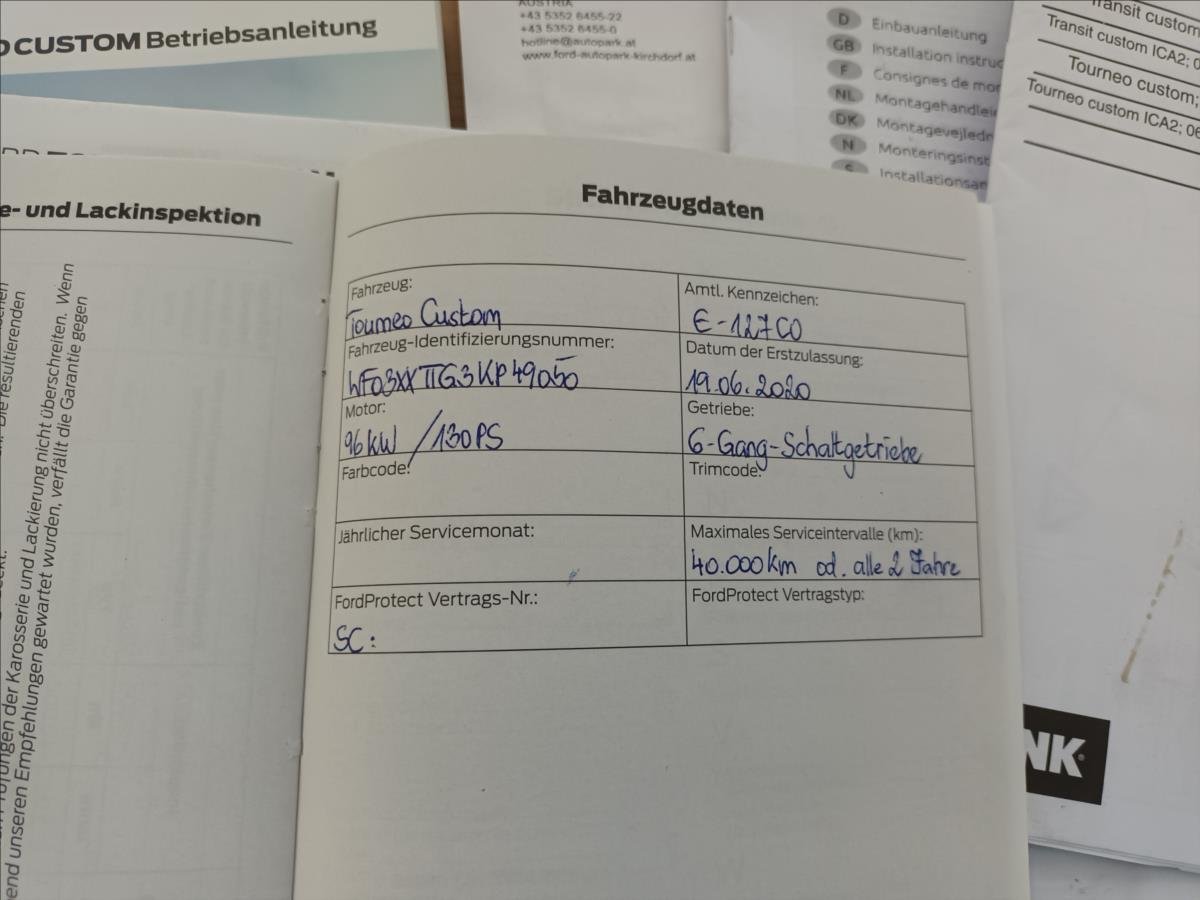 CUSTOM Betriebsanleitung
AUSTRIA
+43 5352 6455-22
+43 5352 6455-0
hotline@autopark.at
www.ford-autopark-kirchdorf.at
D Einbauanleitung
GB Installation instruc
F Consignes de mon
NL Montagehandlei
DK Montagevejledn
N Monteringsinst
S Installationsan
Transit custom
Transit custom ICA2; 0
Tourneo custom;
Tourneo custom ICA2; 06
e- und Lackinspektion
resultierenden
der Karosserie und Lackierung nicht überschreiten. Wenn
end unseren Empfehlungen gewartet wurden, verfällt die Garantie gegen
Fahrzeugdaten
Fahrzeug:
Tourneo Custom
Amtl. Kennzeichen:
E-127CO
Fahrzeug-Identifizierungsnummer:
WF03XXTTG3KP49050
Datum der Erstzulassung:
19.06.2020
Motor:
96 kW / 130 PS
Getriebe:
6-Gang-Schaltgetriebe
Farbcode:
Trimcode:
Jährlicher Servicemonat:
Maximales Serviceintervalle (km):
40.000 km od. alle 2 Jahre
FordProtect Vertrags-Nr.:
SC:
FordProtect Vertragstyp:
NK